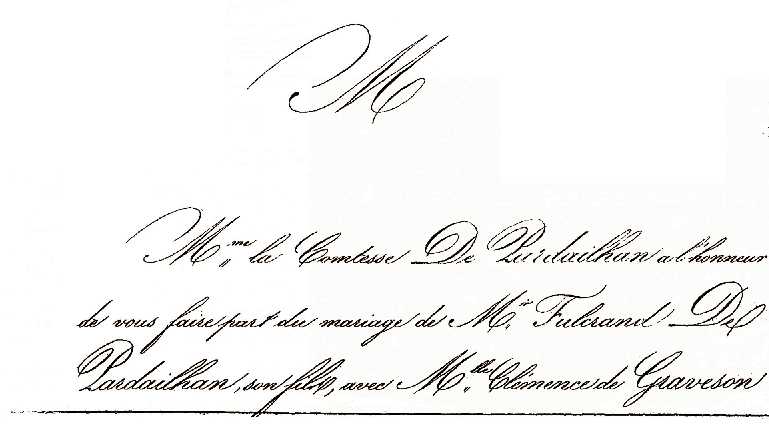 M
Mme la Comtesse De Pardailhan a l'honneur
de vous faire part du mariage de Mr. Fulcrand De
Pardailhan, son fils, avec Mlle Clémence de Graveson